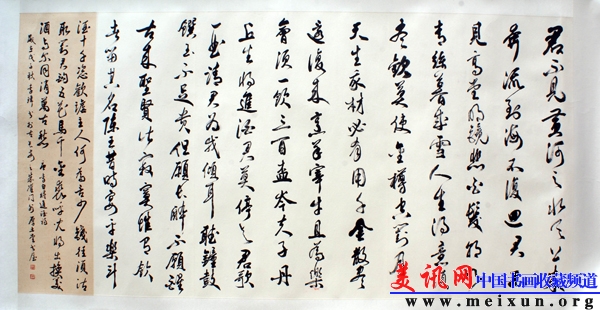 君不見黃河之水天上來
奔流到海不復回君不
見高堂明鏡悲白髮朝如
青絲暮成雪人生得意須
盡歡莫使金樽空對月
天生我材必有用千金散盡
還復來烹羊宰牛且為樂
會須一飲三百盃岑夫子丹
丘生將進酒君莫停與君歌
一曲請君為我傾耳聽鐘鼓
饌玉不足貴但願長醉不願醒
古來聖賢皆寂寞惟有飲
者留其名陳王昔時宴平樂斗
酒十千恣歡謔主人何為言少錢徑須沽
取對君酌五花馬千金裘呼兒將出換美
酒與爾同消萬古愁 唐李白詩將進酒
美讯网
中国书画收藏频道
www.meixun.org